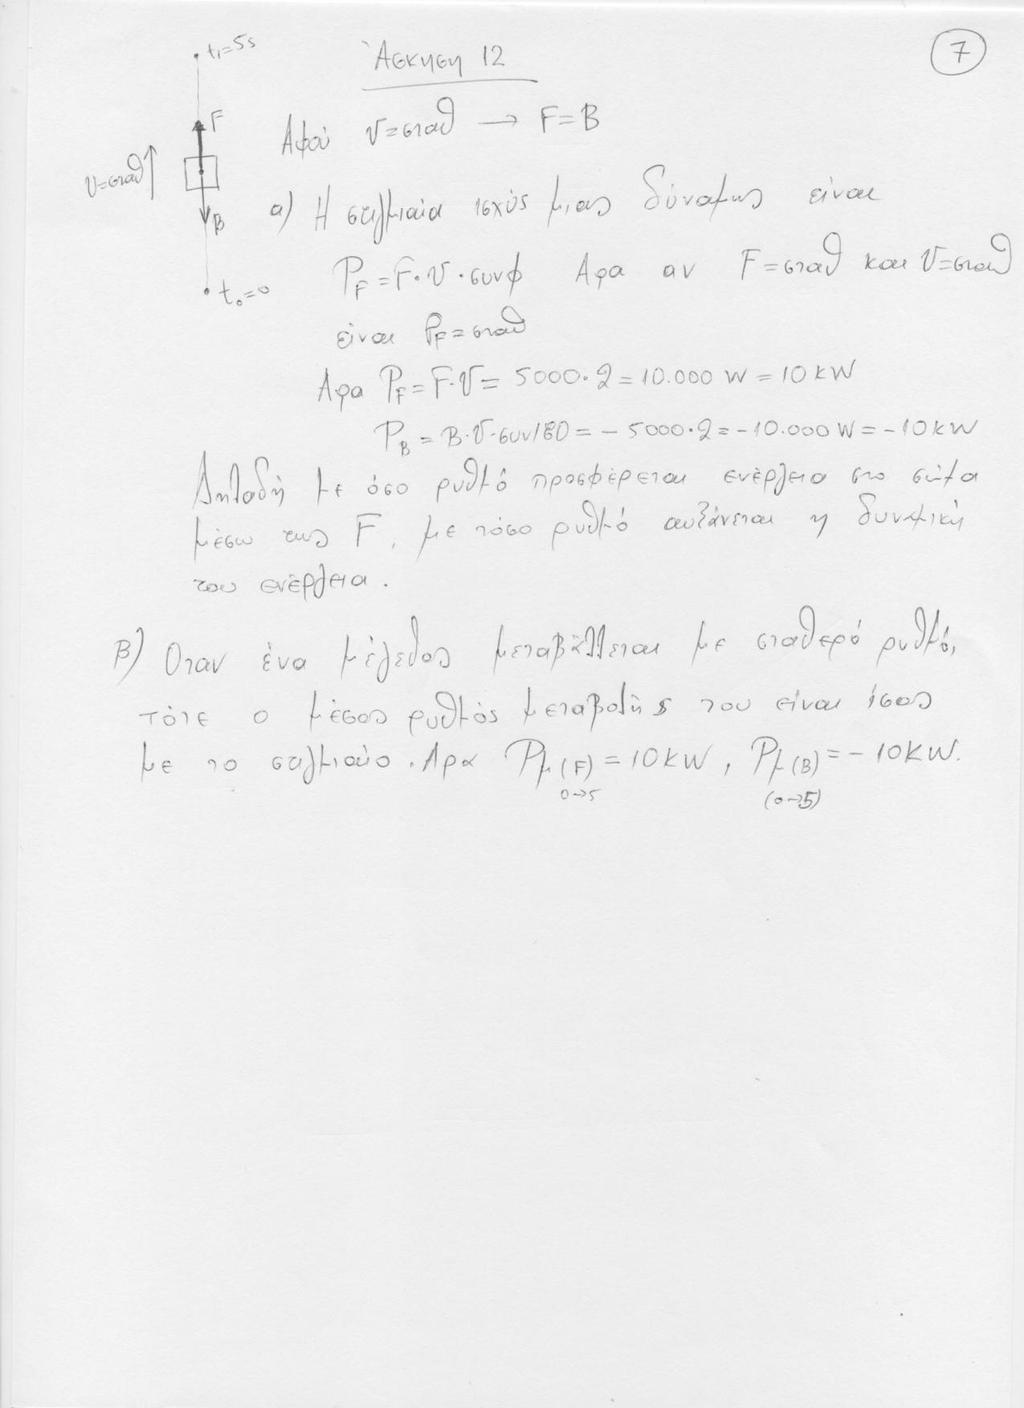 t₁=5s
Άσκηση 12
7
F
Αφού υ=σταθ → F=B
υ=σταθ
B
α) Η στιγμιαία ισχύς μιας δύναμης είναι
t₀=0
P_F=F·υ·συνφ Αρα αν F=σταθ και υ=σταθ
είναι P_F=σταθ
Αρα P_F=F·υ= 5000·2=10.000 W = 10 kW
P_B = B·υ·συν180 = - 5000·2=-10.000 W = -10 kW
Δηλαδή με όσο ρυθμό προσφέρεται ενέργεια στο σώμα
μέσω της F, με τόσο ρυθμό αυξάνεται η δυναμική
του ενέργεια.
Β) Οταν ένα μέγεθος μεταβάλλεται με σταθερό ρυθμό,
τότε ο μέσος ρυθμός μεταβολής του είναι ίσος
με το στιγμιαίο. Αρα Pμ(F) = 10 kW, Pμ(B) = - 10 kW.
0→5 (0→5)